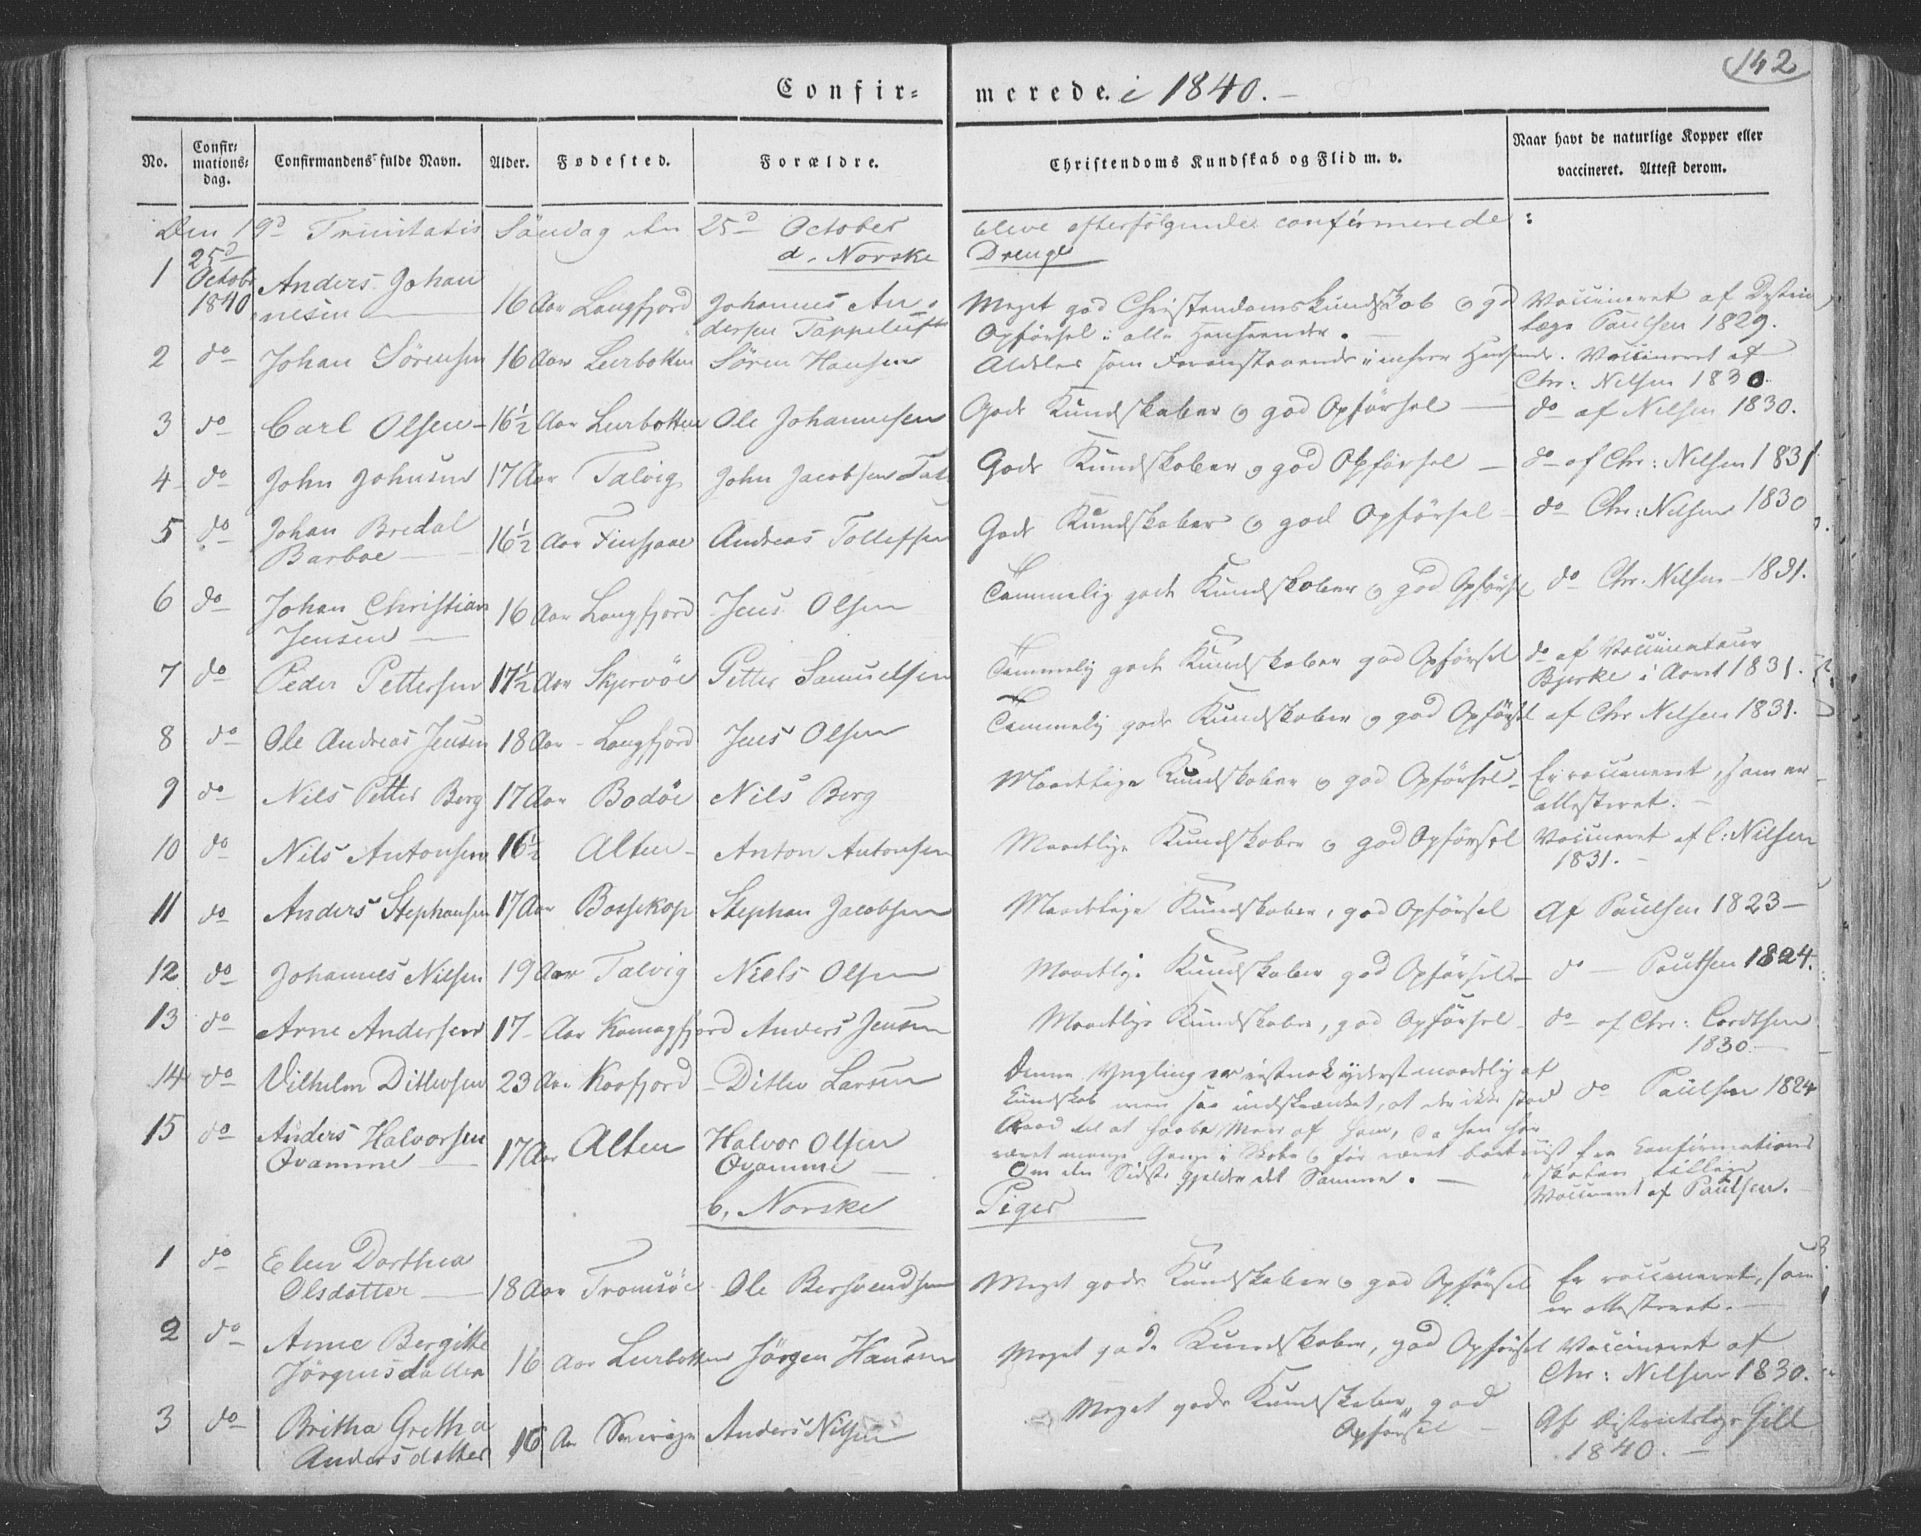 142
Confir- merede. i 1840. -
No. Confir- mations- dag. Confirmandens fulde Navn. Alder. Fødested. Forældre. Christendoms Kundskab og Flid m. v. Naar havt de naturlige Kopper eller vaccineret. Attest derom.
Den 19d Trinitatis Søndag den 25d October bleve efterfølgende confirmerede:
d. Norske Drenge
1 25d Octobr 1840 Anders Johannesen 16 Aar Langfjord Johannes Andersen Tappeluft Meget god Christendomskundskab og god Opførsel i alle Henseender. Vaccineret af Distriktlæge Paulsen 1829.
2 do Johan Sørensen 16 Aar Lerbotten Sören Hansen Aldeles som Foranstaaende i enhver Henseende. Vaccineret af Chr: Nilsen 1830.
3 do Carl Olsen - 16½ Aar Lerbotten Ole Johannesen Gode Kundskaber og god Opførsel — do af Nilsen 1830.
4 do John Johnsen 17 Aar Talvig John Jacobsen Gode Kundskaber og god Opførsel — do af Chr: Nilsen 1831
5 do Johan Bredal Barboe — 16½ Aar Andreas Tollefsen Gode Kundskaber og god Opførsel — do Chr: Nilsen 1830
6 do Johan Christian Jensen — 16 Aar Langfjord Jens Olsen Temmelig gode Kundskaber og god Opførsel do Chr. Nilsen - 1831.
7 do Peder Pettersen 17½ Aar Skjervöe Petter Samuelsen Temmelig gode Kundskaber god Opførsel do af Vaccinateur Bjerke i Aaret 1831.
8 do Ole Andreas Jensen 18 Aar - Langfjord Jens Olsen Temmelig gode Kundskaber og god Opførsel af Chr Nilsen 1831.
9 do Nils Petter Berg 17 Aar Bodöe Nils Berg Maadelige Kundskaber og god Opførsel - Er vaccineret, som er attesteret. -
10 do Nils Antonsen 16½ Alten - Anton Antonsen Maadelige Kundskaber og god Opførsel Vaccineret af C: Nilsen 1831. -
11 do Anders Stephansen 17 Aar Bossekop Stephan Jacobsen Maadelige Kundskaber, god Opførsel Af Paulsen 1823 —
12 do Johannes Nilsen 19 Aar Talvig Niels Olsen Maadelige Kundskaber god Opførsel - do — Paulsen 1824.
13 do Arne Andersen 17 - Aar Komagfjord Anders Jensen Maadelige Kundskaber, god Opførsel - do af Chr: Cordtsen 1830 —
14 do Vilhelm Ditlevsen 23 Aar Kaafjord - Ditlev Larsen Denne Yngling er vistnok yderst maadelig af Kundskab men saa indskrænket, at der ikke stod do Paulsen 1824
15 do Anders Halvorsen Qvamme — 17 Aar Alten Halvor Olsen Qvamme — Raad til at haabe Mere af ham, da han har været mange Gange i Skole og før været bortvist fra Confirmations
Om den Sidste gjelder det Samme. — skolen tillige Vaccineret af Paulsen.
b, Norske Piger
1 do Elen Dorthea Olsdatter — 18 Aar Tromsöe Ole Bersvendsen Meget gode Kundskaber og god Opførsel Er vaccineret, som er attesteret. —
2 do Anne Bergitte Jörgensdatter 16 Aar Lerbotten Jörgen Hansen Meget gode Kundskaber, god Opførsel Vaccineret af Chr: Nilsen 1830.
3 do Britha Gretha Andersdatter 16 Aar Anders Nilsen Meget gode Kundskaber, god Opførsel - Af Districtslæge Gill 1840. —